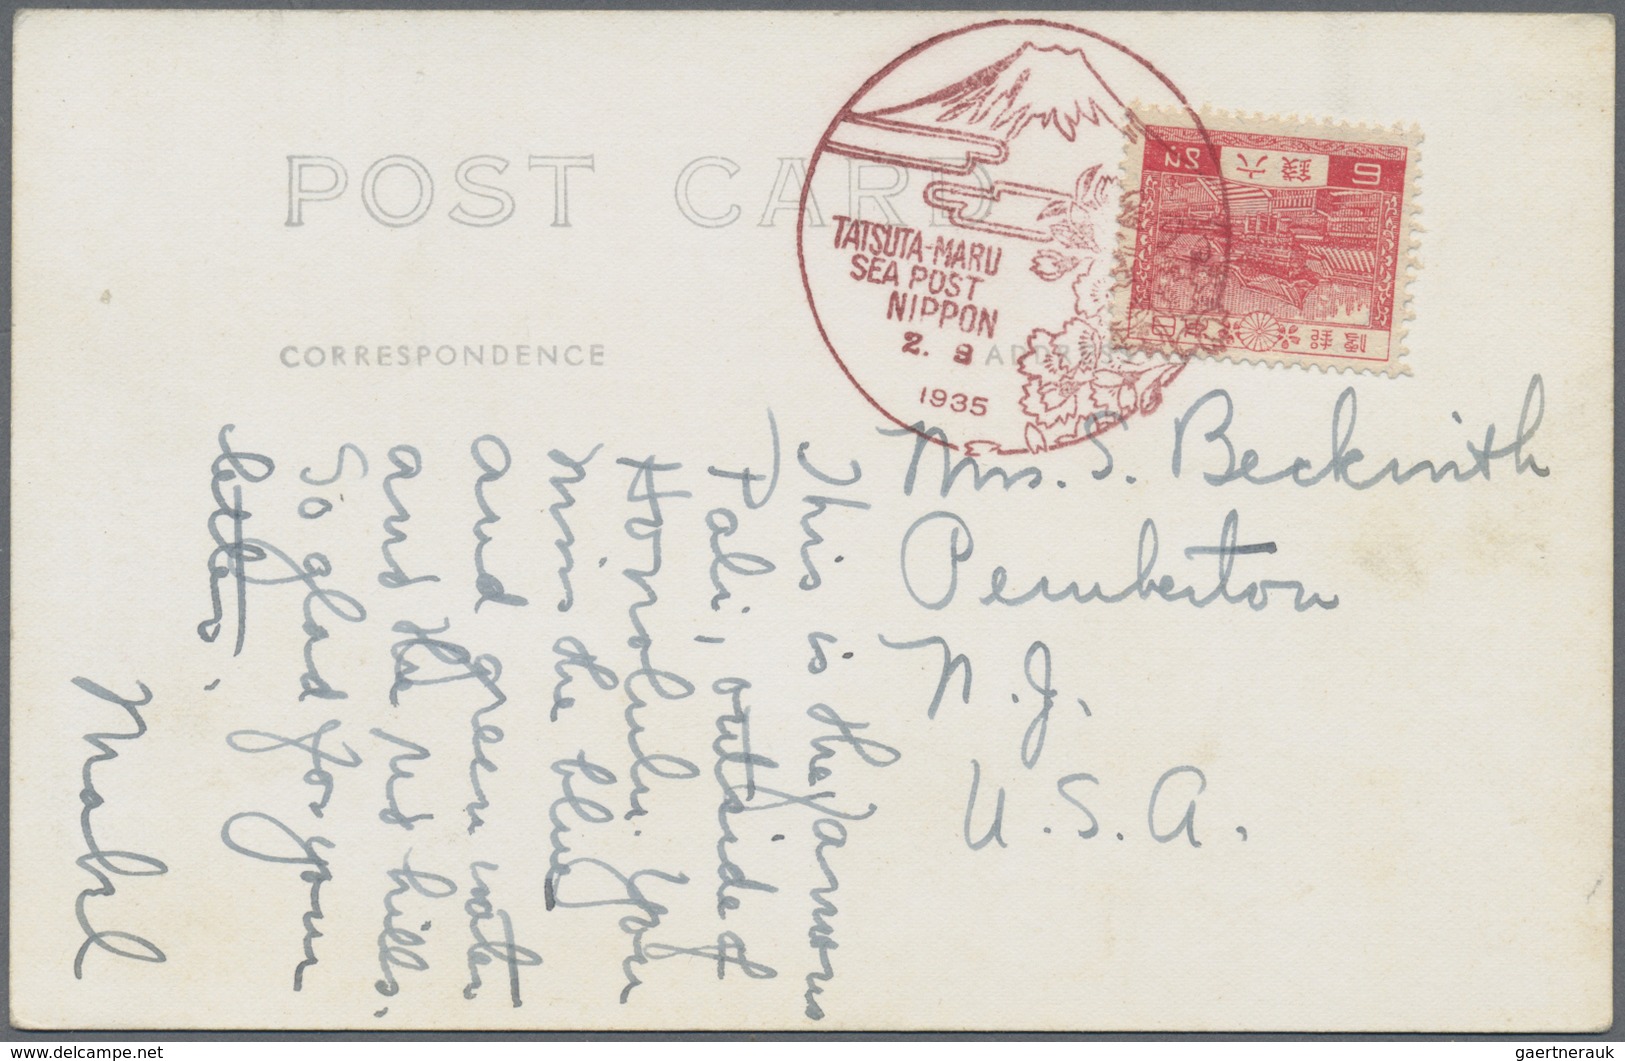 POST CARD
TATSUTA-MARU
SEA POST
NIPPON
2. 9
1935
6 Sn
六銭
日本郵便
CORRESPONDENCE
ADDRESS
Mrs. S. Beckwith
Pemberton
N. J.
U. S. A.
This is the famous
Pali, outside of
Honolulu. You
miss the blue
and green water
and the red hills.
So glad for your
letter.
Mabel
gaertnerauk
www.delcampe.net/gaertnerauk